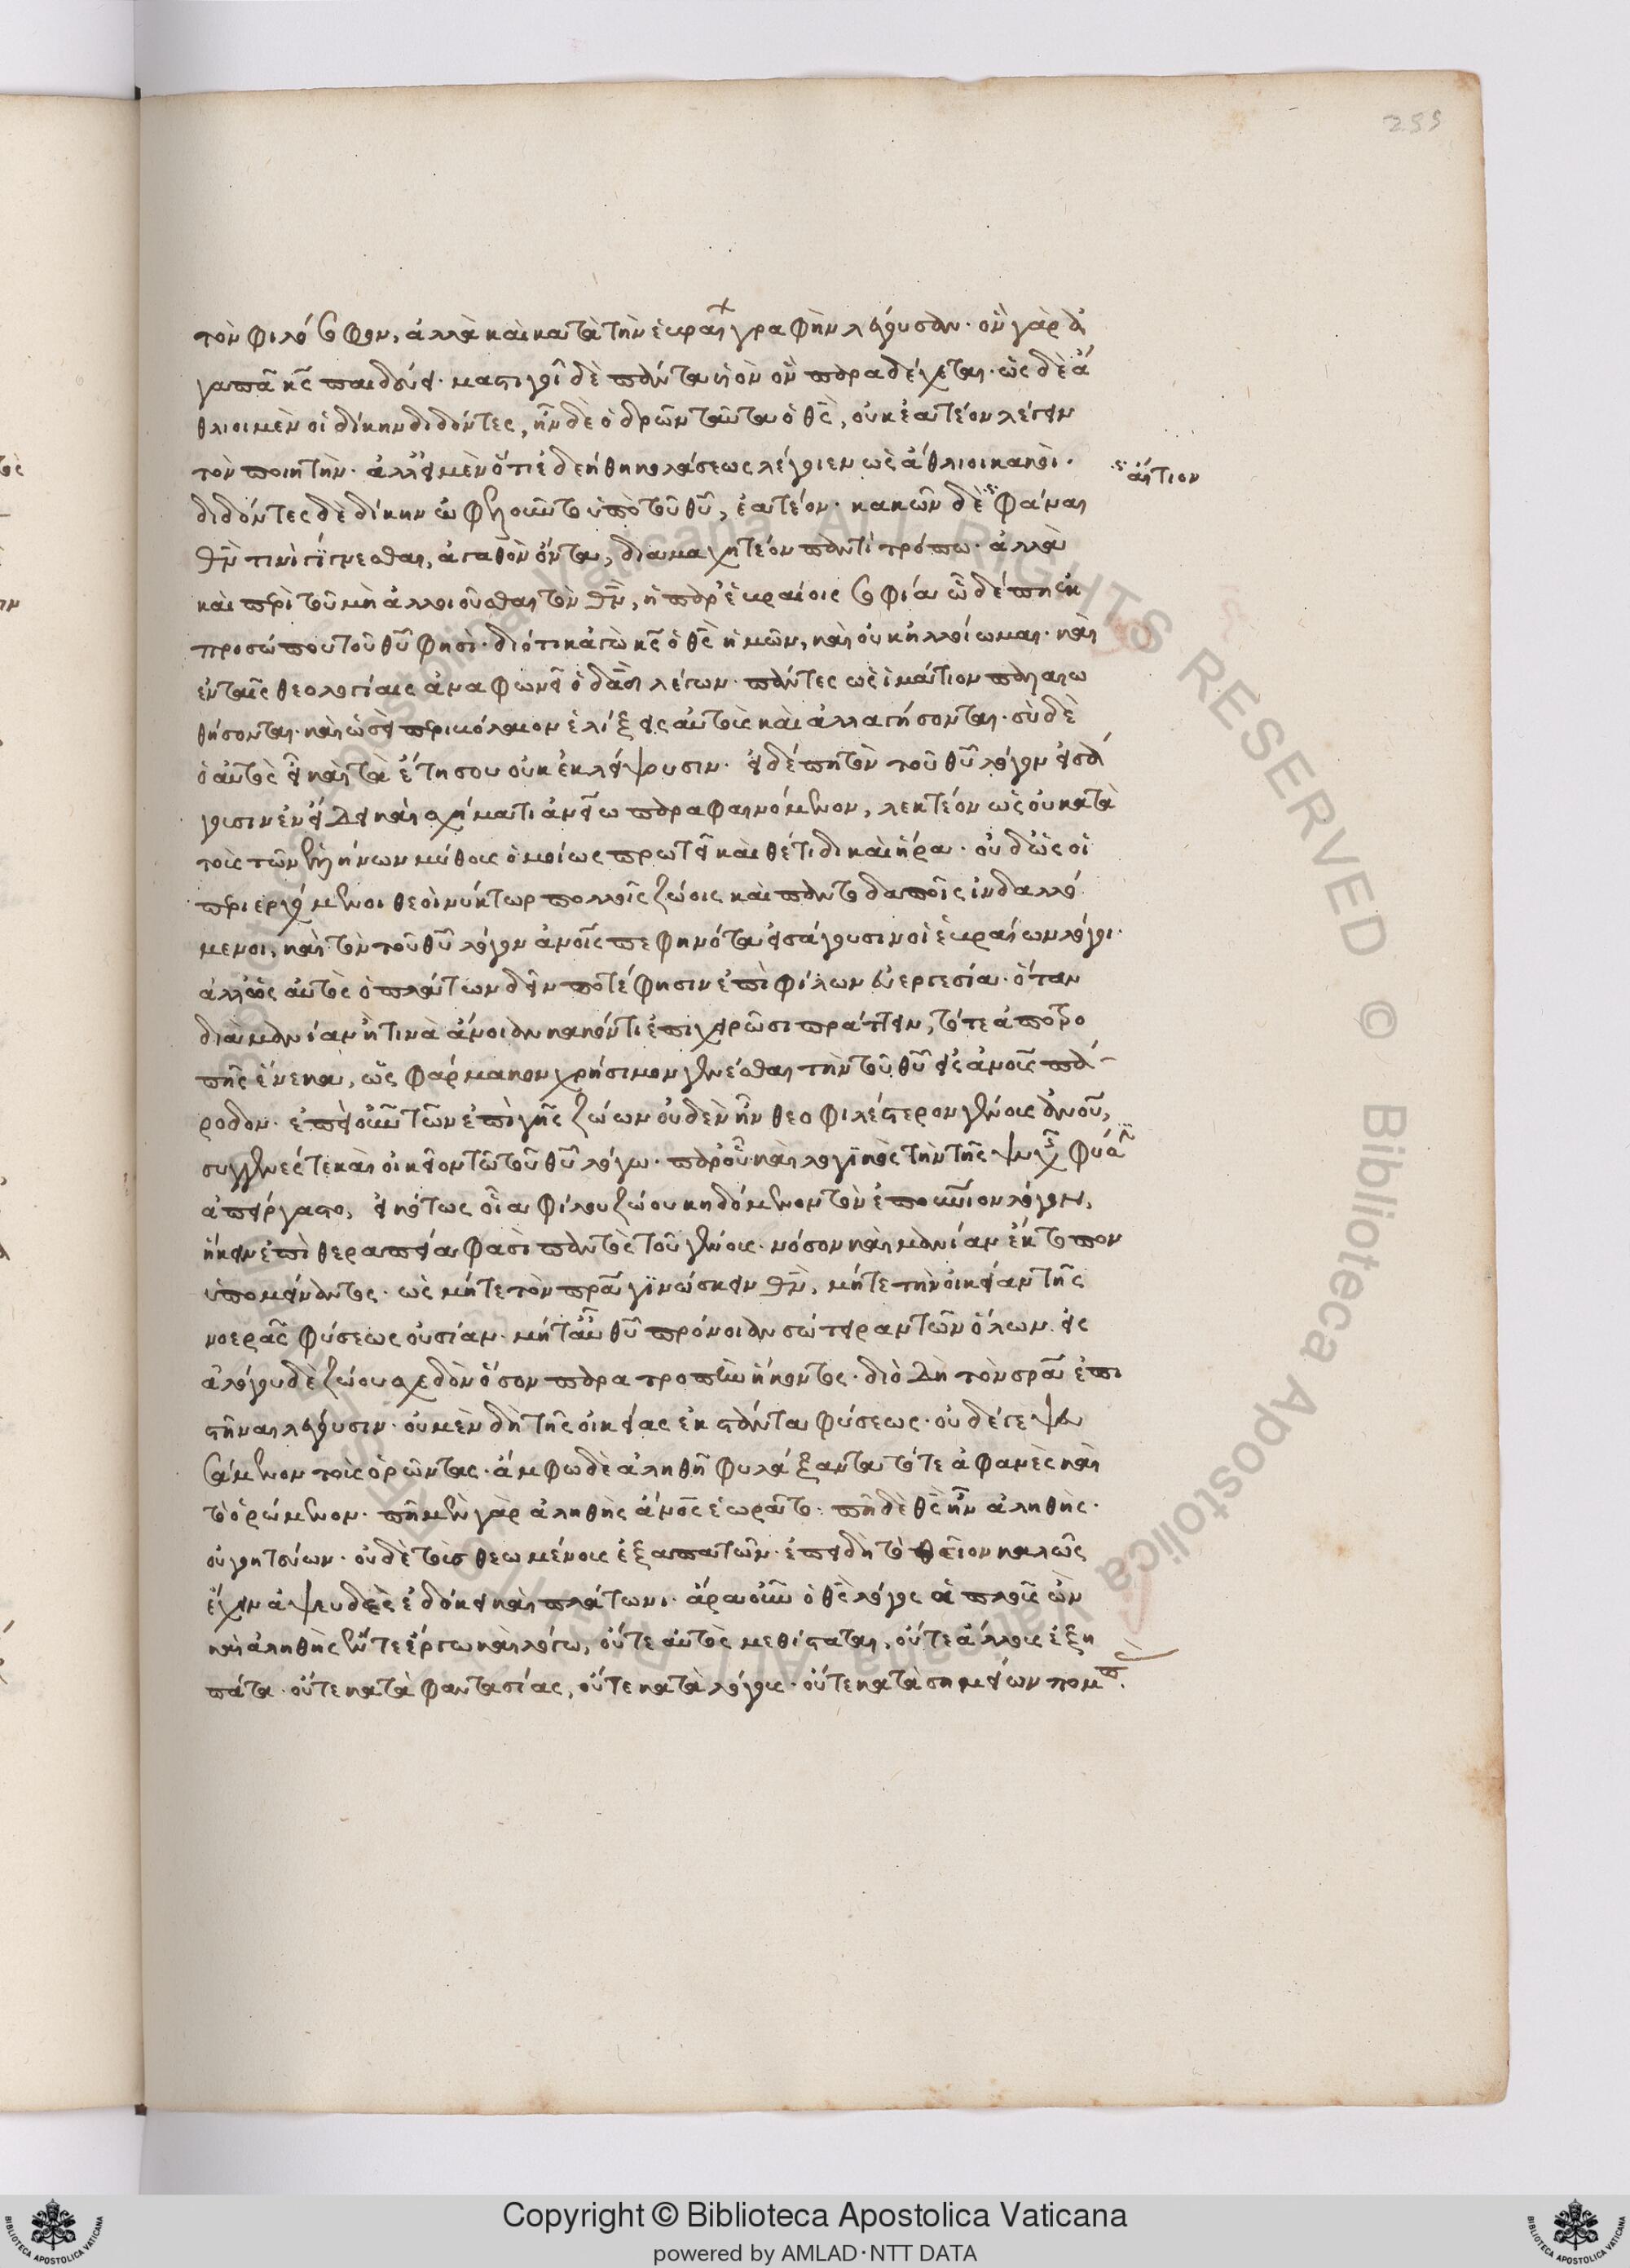 255
τὸν φιλόσοφον, ἀλλὰ καὶ κατὰ τὴν ἑβραί^χ γραφὴν λέγουσαν· ὃν γὰρ ἀ
γαπᾶ κς παιδεύει· μαστιγοῖ δὲ πάντα υἱὸν ὃν παραδέχεται· ὡς δὲ ἄ
θλιοι μὲν οἱ δίκην διδόντες, ἦν δὲ ὁ δρῶν ταῦτα ὁ θς, οὐκ ἐατέον λέγειν
τὸν ποιητὴν· ἀλλ' εἰ μὲν ὅτι ἐδεήθη κολάσεως λέγοιεν ὡς ἄθλιοι κακοὶ·
διδόντες δὲ δίκην ὠφελοῦντο ὑπὸ τοῦ θυ, ἐατέον· κακῶν δὲ φάναι
θν τινὶ γίγνεσθαι, ἀγαθὸν ὄντα, διαμαχητέον παντὶ τρόπω· ἀλλὰ
αἴτιον
καὶ περὶ τοῦ μὴ ἀλλοιοῦσθαι τὸν θν, ἡ παρ' ἑβραίοις σοφία ὧδέ πη ἐκ
προσώπου τοῦ θυ φησὶ· διότι ἐγὼ κς ὁ θς ἡμῶν, καὶ οὐκ ἠλλοίωμαι· καὶ
ἐν ταῖς θεολογίαις ἀναφωνεῖ ὁ δαδ λέγων· πάντες ὡς ἱμάτιον παλαιω
θήσονται· καὶ ὡσεὶ περιβόλαιον ἑλίξεις αὐτοὺς καὶ ἀλλαγήσονται· σὺ δὲ
ὁ αὐτὸς εἶ καὶ τὰ ἔτη σου οὐκ ἐκλείψουσιν· εἰ δέ πη τὸν τοῦ θυ λόγον εἰσά
γοισιν ἐν εἴδει καὶ σχήματι ἀνείω παραφαινόμενον, λεκτέον ὡς οὐ κατὰ
τοὺς τῶν ἑλλήνων μύθους ὁμοίως πρωτεῖ καὶ θέτιδι καὶ ἥρα· οὐδ' ὡς οἱ
περιερχόμενοι θεοὶ νύκτωρ πολλοῖς ζώοις καὶ παντοδαποῖς ἰνδαλλό
μενοι, καὶ τὸν τοῦ θυ λόγον ἀνοις πεφηνότα εἰσάγουσιν οἱ ἑβραίων λόγοι·
ἀλλ' ὡς αὐτὸς ὁ πλάτων δεῖν ποτέ φησιν ἐπὶ φίλων εὐεργεσία· ὅταν
διὰ μανίαν ἤ τινα ἄνοιαν κακόν τι ἐπιχειρῶσι πράττειν, τότε ἀποτρο
πῆς ἕνεκα, ὡς φάρμακον χρήσιμον γενέσθαι τὴν τοῦ θυ εἰς ἀνους πά
ροδον· ἐπεὶ οὖν τῶν ἐπὶ γῆς ζώων οὐδὲν ἦν θεοφιλέστερον γένους ἀνου,
συγγενές τε καὶ οἰκεῖον τῶ τοῦ θυ λόγω· παρ' οὗ καὶ λογικὸς τὴν τῆς ψυχῆς φύσιν
ἀπείργαστο, εἰκότως οἷα φίλου ζώου κηδόμενον τὸν ἐπουράνιον λόγον,
ἥκειν ἐπὶ θεραπεία φασὶ παντὸς τοῦ γένους· νόσον καὶ μανίαν ἔκτοπον
ὑπομείναντος· ὡς μήτε τὸν πρα γινώσκειν θν, μήτε τὴν οἰκείαν τῆς
νοερᾶς φύσεως οὐσίαν· μήτ' αὖ θυ πρόνοιαν σώτειραν τῶν ὅλων· εἰς
ἀλόγου δὲ ζώου σχεδὸν ὅσον παρατροπὴν ἥκοντος· διὸ δὴ τὸν σρα ἐπι
στῆναι λέγουσιν· οὐ μὲν δὴ τῆς οἰκείας ἐκστάντα φύσεως· οὐδέ γε ψευ
σάμενον τοὺς ὁρῶντας· ἄμφω δὲ ἀληθῆ φυλάξαντα τό τε ἀφανὲς καὶ
τὸ ὁρώμενον· πῆ μὲν γὰρ ἀληθὴς ἀνος ἑωρᾶτο· πῆ δὲ θς ἦν ἀληθὴς·
οὐ γοητεύων· οὐδὲ τοὺς θεωμένους ἐξαπατῶν· ἐπειδὴ τὸ θεῖον καλῶς
ἔχειν ἀψευδὲς ἐδόκει καὶ πλάτωνι· ἄρα οὖν ὁ θς λόγος ἁπλοῦς ὢν
καὶ ἀληθὴς ἔν τε ἔργω καὶ λόγω, οὔτε αὐτὸς μεθίσταται, οὔτε ἄλλους ἐξη
πάτα· οὔτε κατὰ φαντασίας, οὔτε κατὰ λόγους· οὔτε κατὰ σημείων πομπ